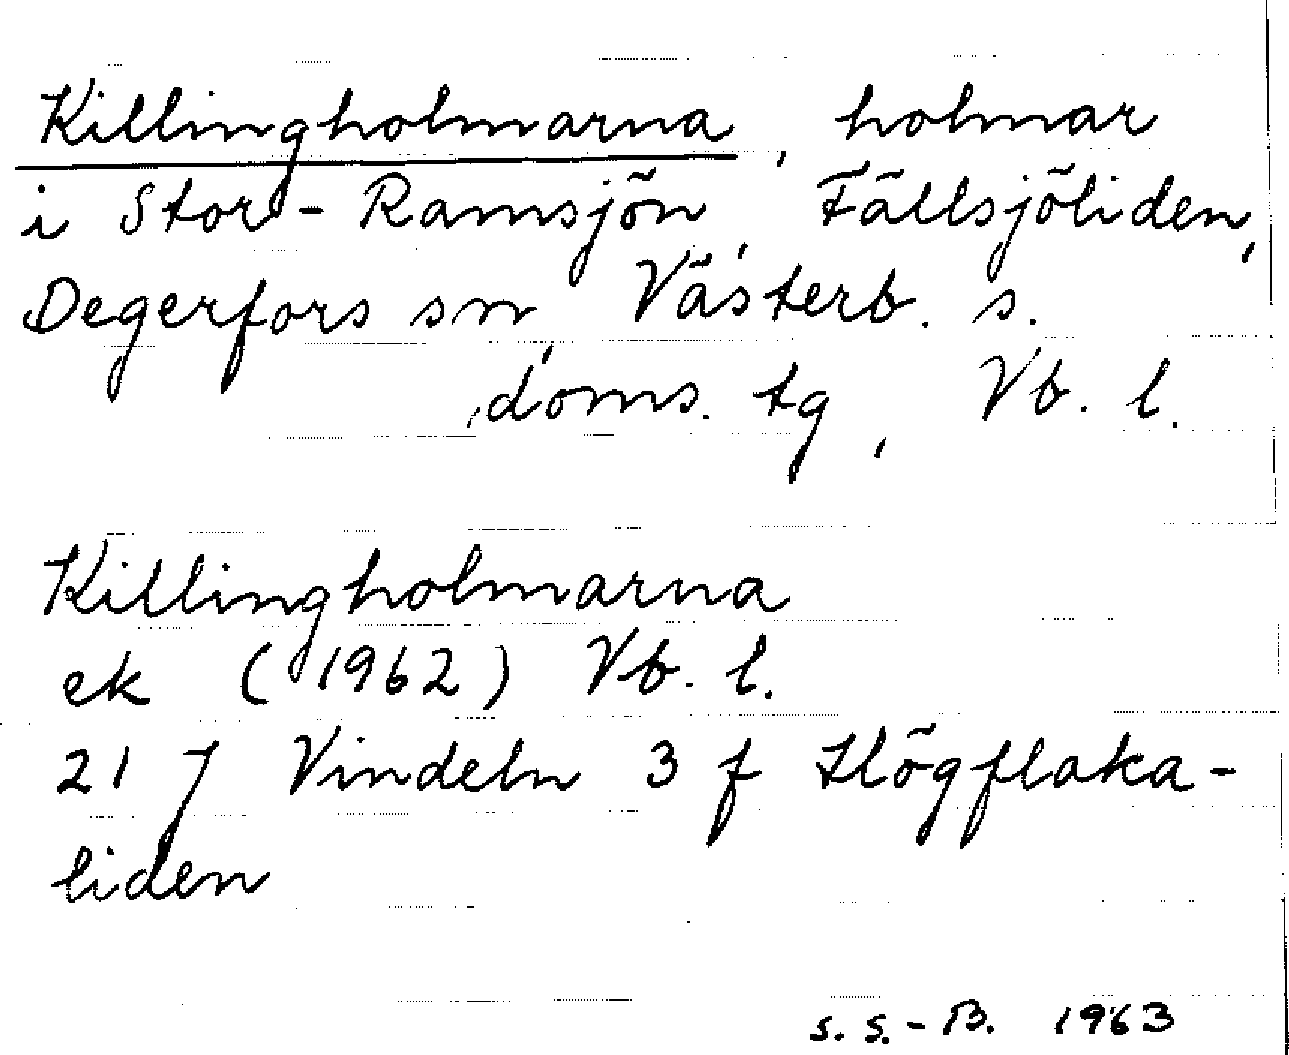 Killingholmarna, holmar
i Stor-Ramsjön, Fällsjöliden,
Degerfors sn, Västerb. s.
doms. tg, Vb. l.
Killingholmarna
ek (1962) Vb. l.
21 J Vindeln 3 f Högflaka-
liden
S. S.-B. 1963